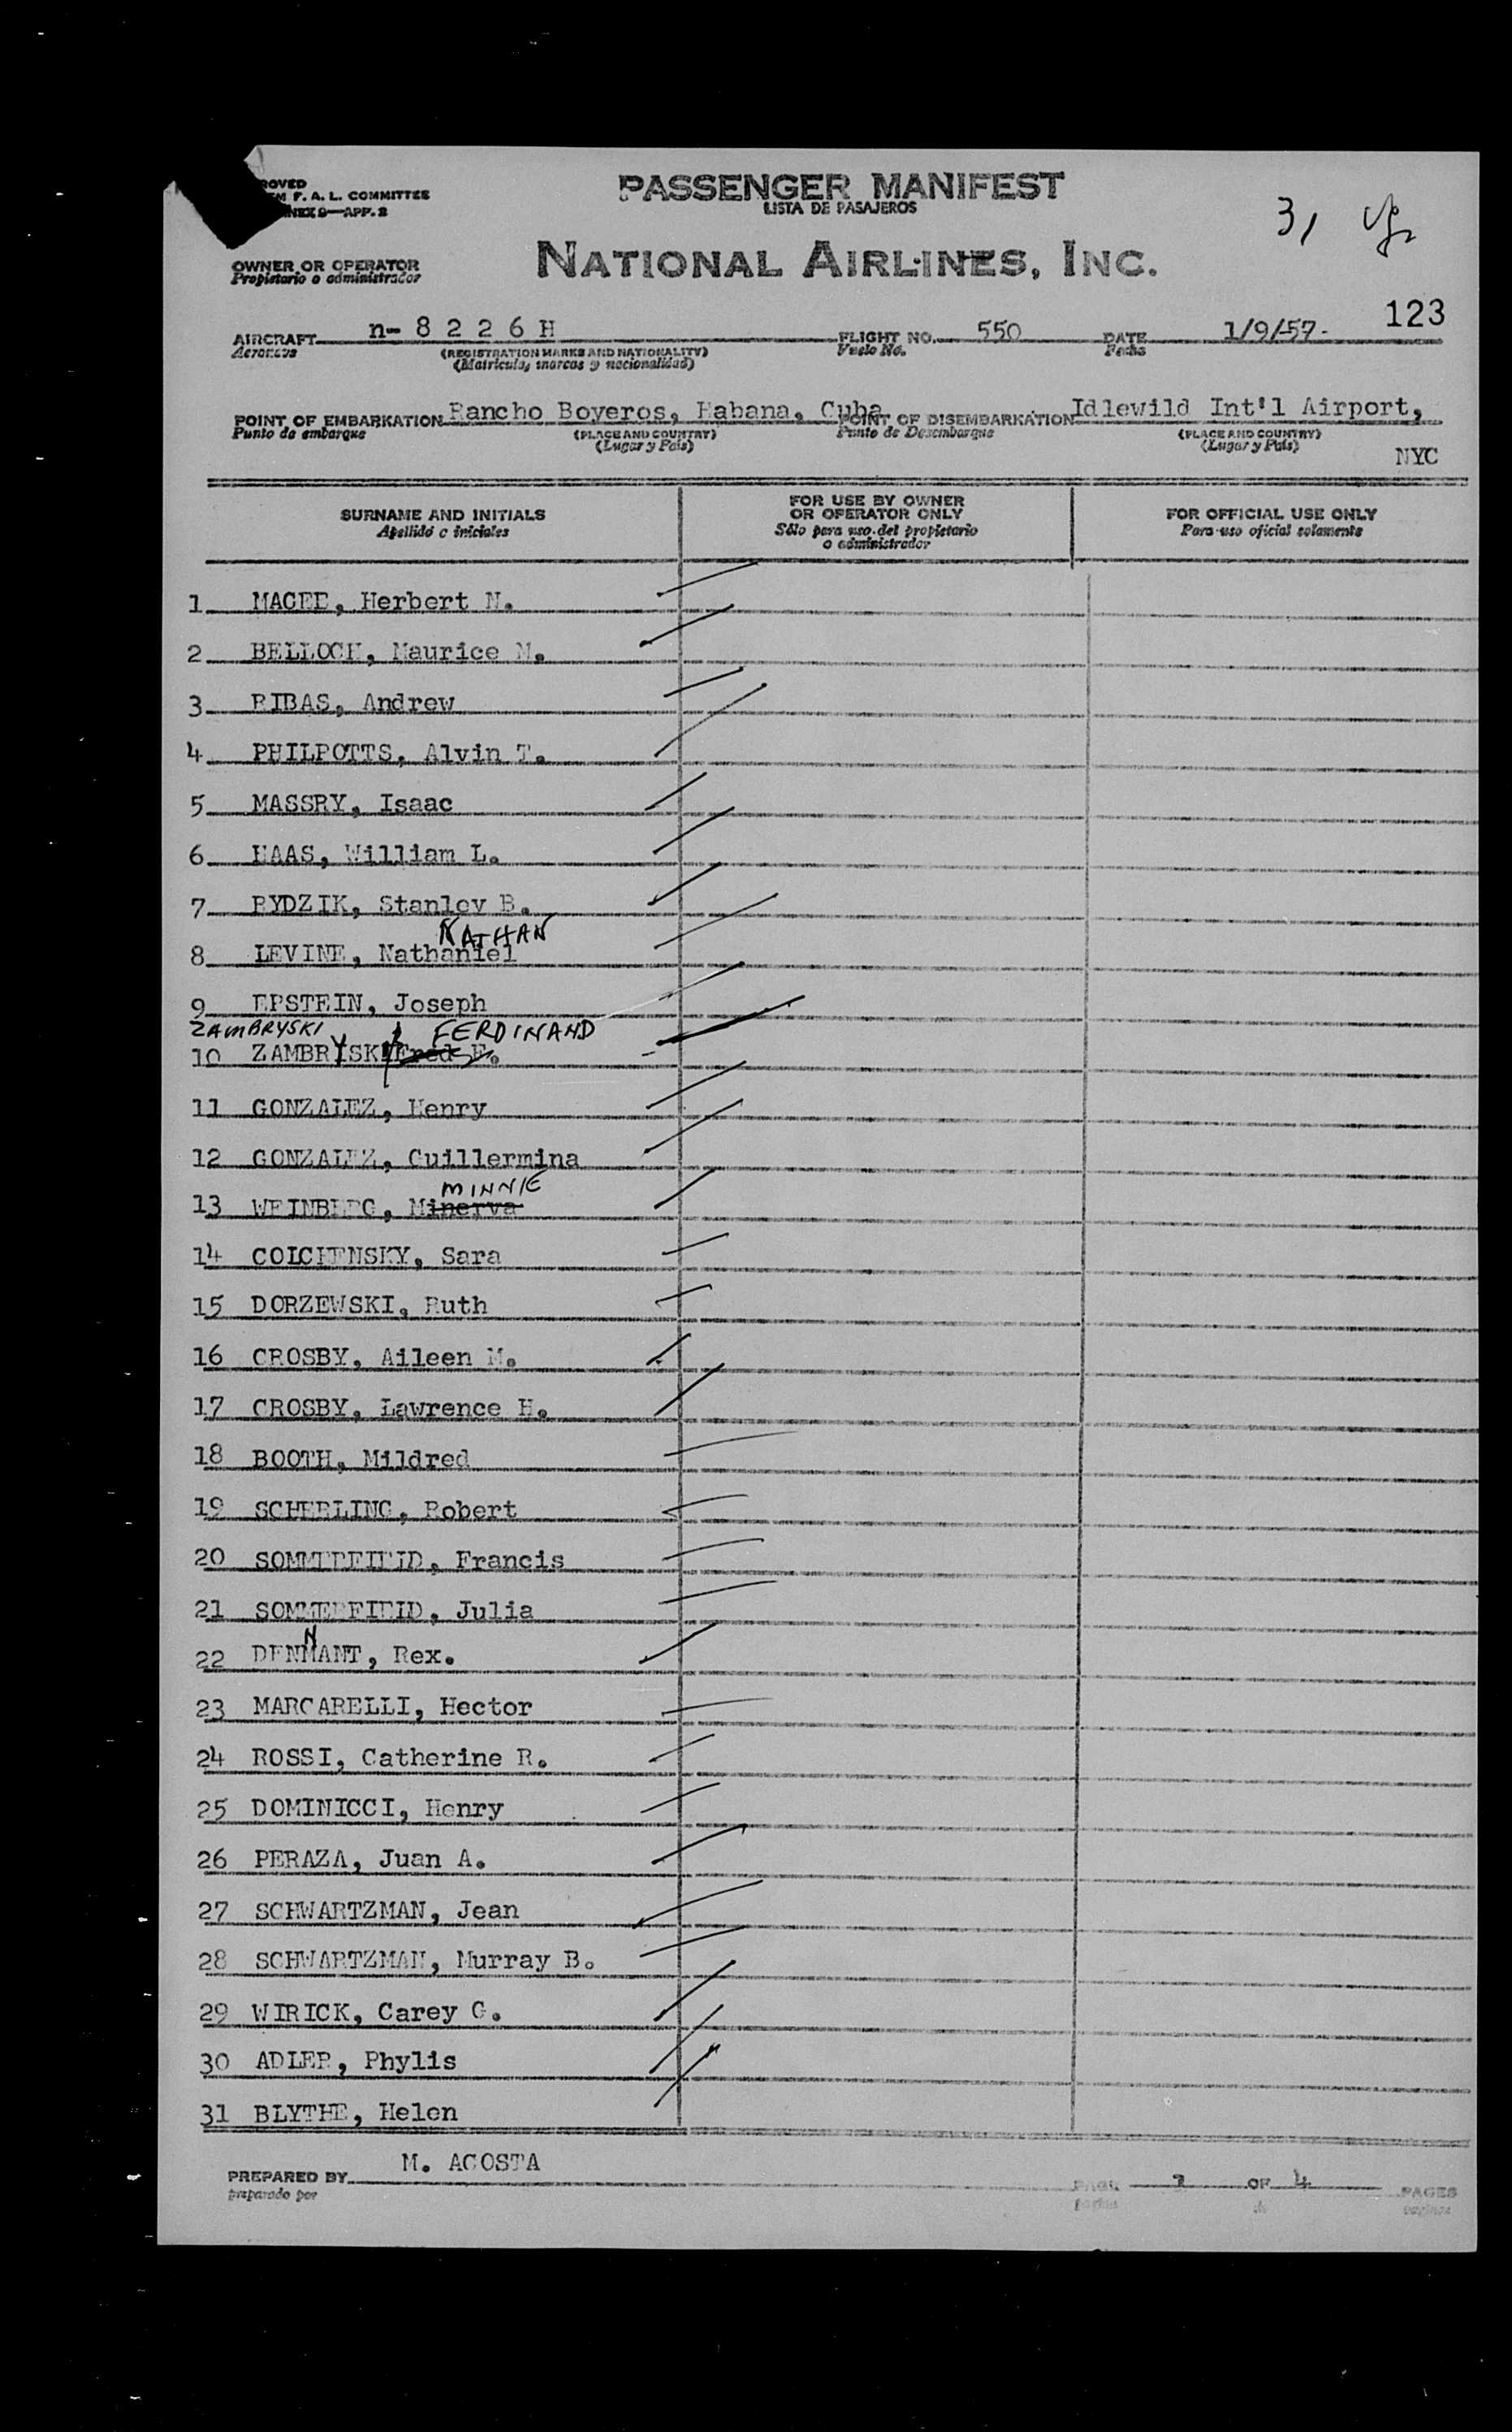 PASSENGER MANIFEST
LISTA DE PASAJEROS
F. A. L. COMMITTEE
APP. 2
31
OWNER OR OPERATOR
Propietario o administrador
NATIONAL AIRLINES, INC.
123
AIRCRAFT n- 8 2 2 6 H FLIGHT NO. 550 DATE 1/9/57-
Aeronave (REGISTRATION MARKS AND NATIONALITY) Vuelo No. Fecha
(Matricula, marcas y nacionalidad)
POINT OF EMBARKATION Rancho Boyeros, Habana, Cuba POINT OF DISEMBARKATION Idlewild Int'l Airport,
Punto de embarque (PLACE AND COUNTRY) Punto de Desembarque (PLACE AND COUNTRY)
(Lugar y País) (Lugar y País) NYC
SURNAME AND INITIALS
Apellido e iniciales
FOR USE BY OWNER
OR OPERATOR ONLY
Sólo para uso del propietario
o administrador
FOR OFFICIAL USE ONLY
Para uso oficial solamente
1 MAGEE, Herbert N.
2 BELLOCH, Maurice M.
3 RIBAS, Andrew
4 PHILPOTTS, Alvin T.
5 MASSRY, Isaac
6 HAAS, William L.
7 RYDZIK, Stanley B.
NATHAN
8 LEVINE, Nathaniel
9 EPSTEIN, Joseph
ZAMBRYSKI FERDINAND
10 ZAMBRYSKI Fred F.
11 GONZALEZ, Henry
12 GONZALEZ, Guillermina
MINNIE
13 WEINBERG, Minerva
14 COLCHENSKY, Sara
15 DORZEWSKI, Ruth
16 CROSBY, Aileen M.
17 CROSBY, Lawrence H.
18 BOOTH, Mildred
19 SCHERLING, Robert
20 SOMMERFIELD, Francis
21 SOMMERFIELD, Julia
N
22 DENMANT, Rex.
23 MARCARELLI, Hector
24 ROSSI, Catherine R.
25 DOMINICCI, Henry
26 PERAZA, Juan A.
27 SCHWARTZMAN, Jean
28 SCHWARTZMAN, Murray B.
29 WIRICK, Carey G.
30 ADLER, Phylis
31 BLYTHE, Helen
PREPARED BY M. ACOSTA PAGE 1 OF 4 PAGES
preparado por